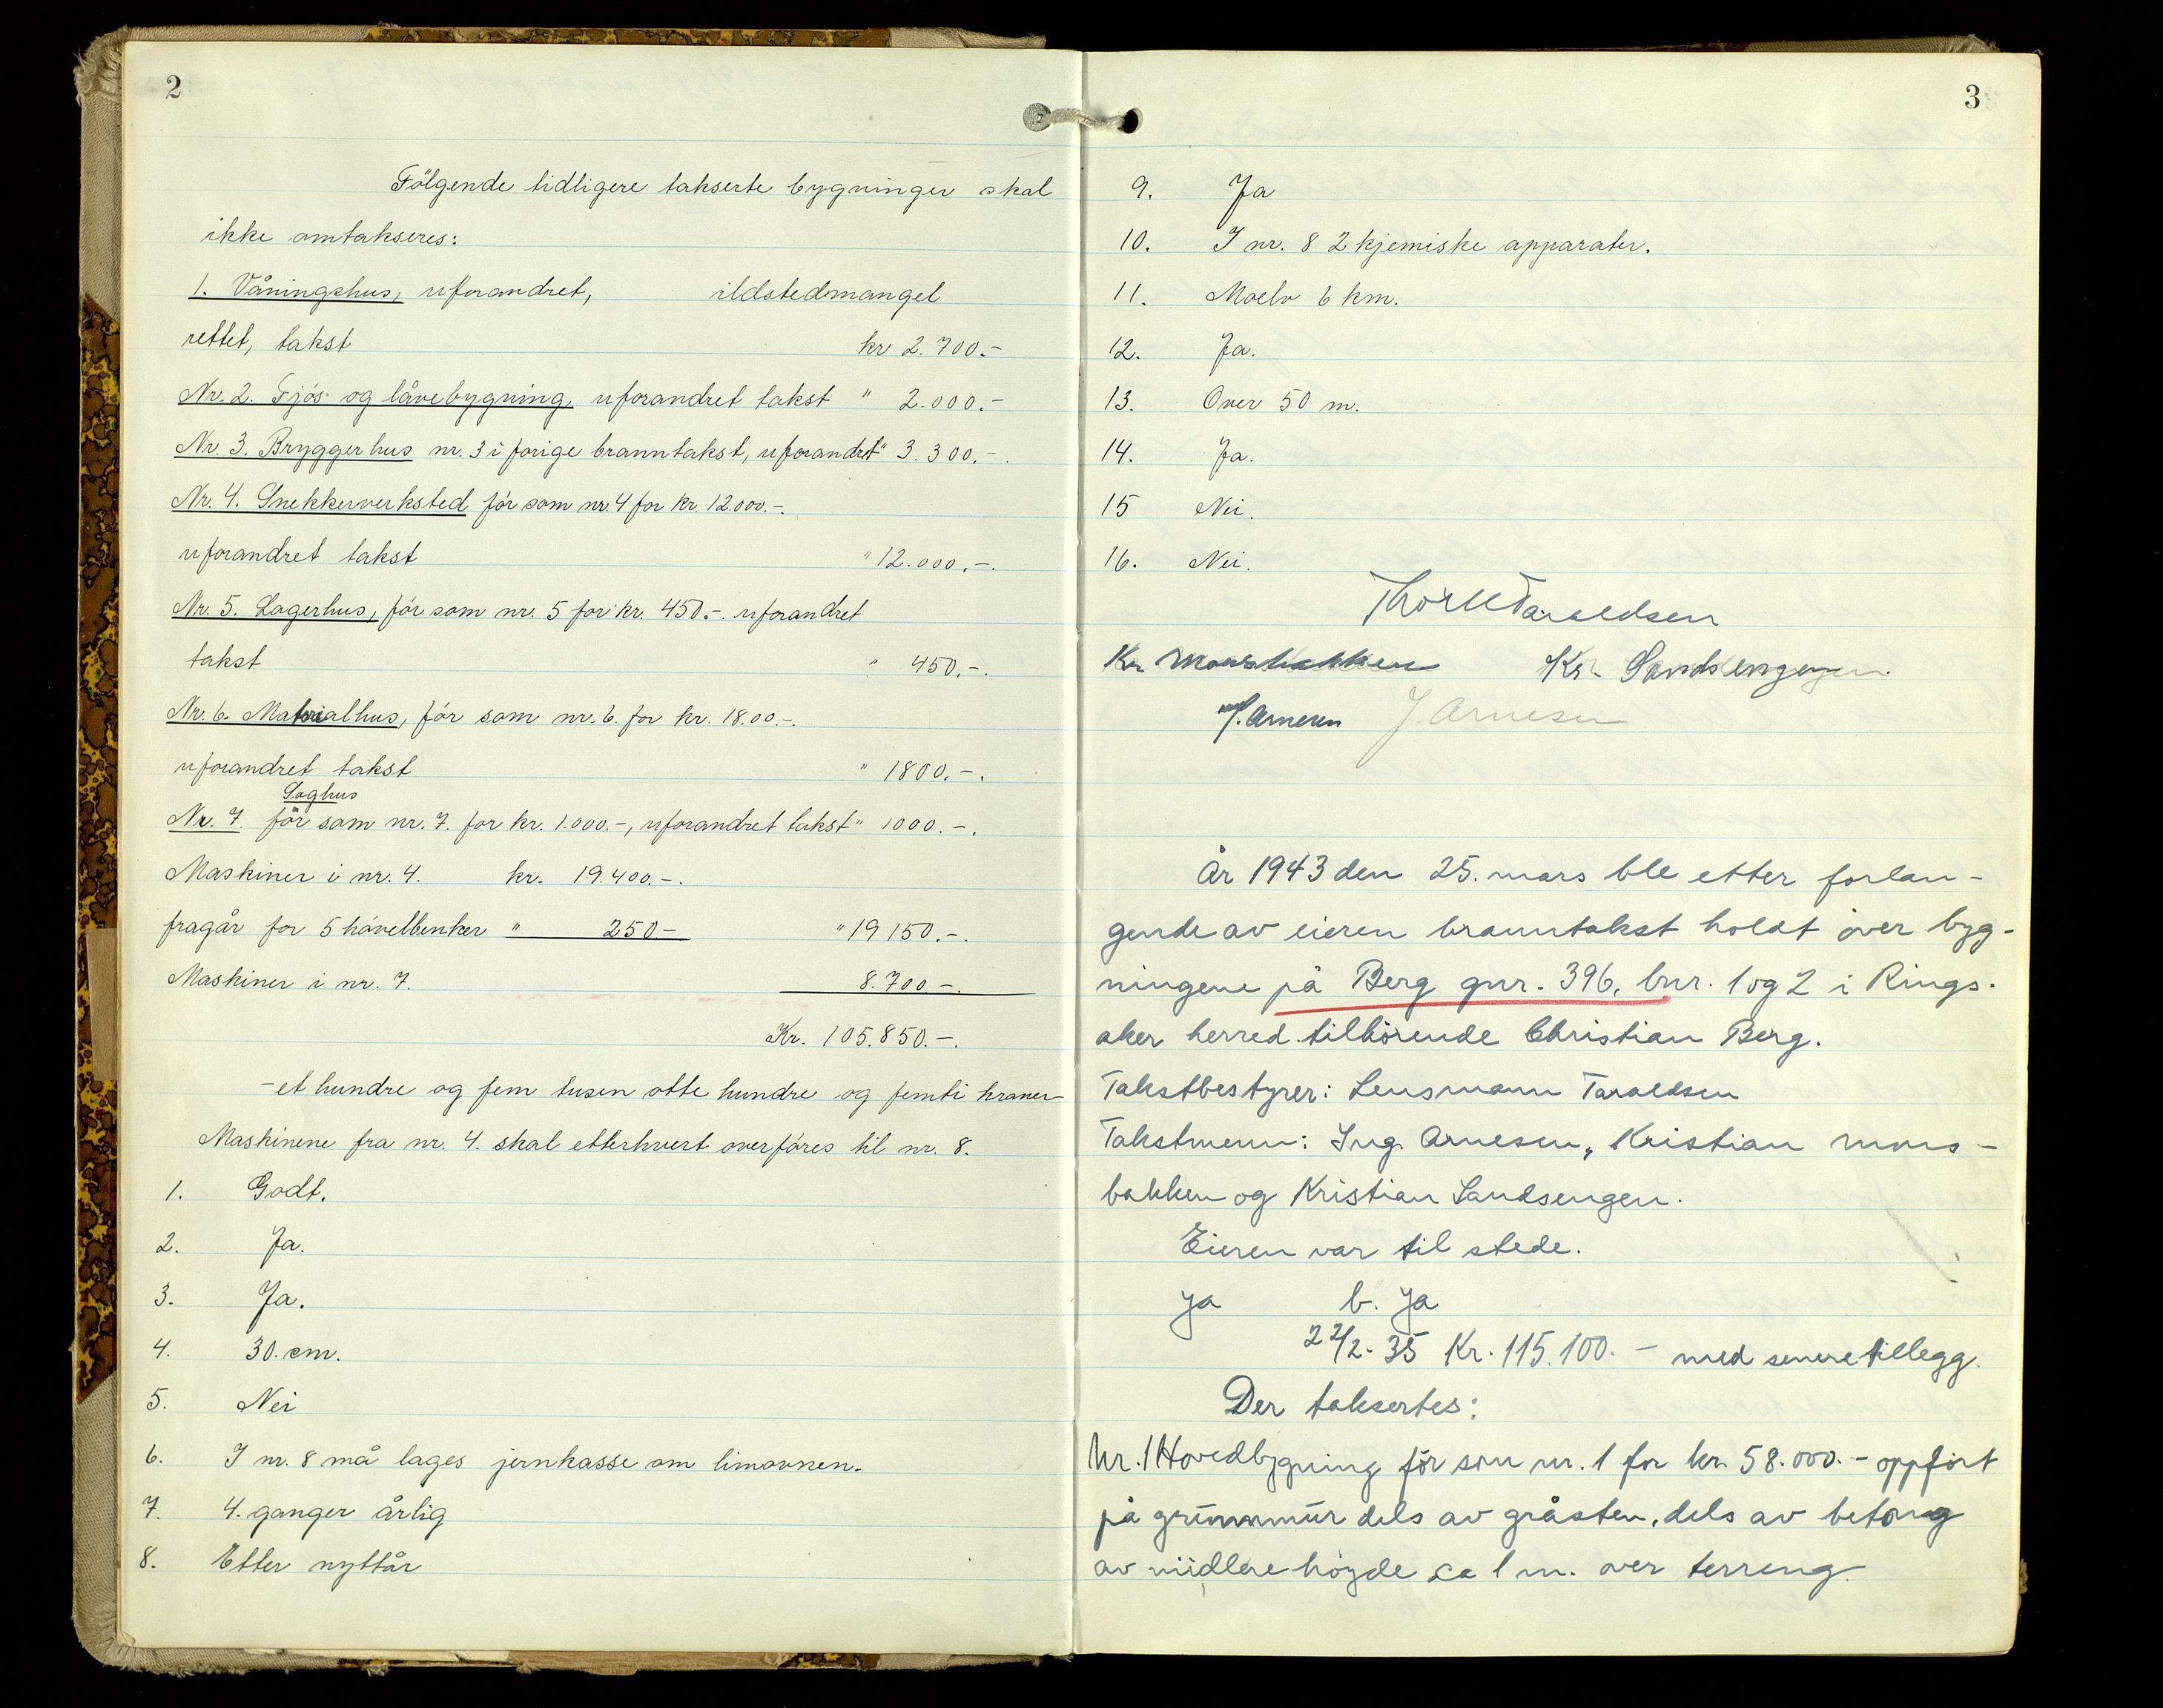 2
Følgende tidligere takserte bygninger skal
ikke omtakseres:
1. Våningshus, uforandret, ildstedmangel
rettet, takst kr 2.700.-
Nr. 2. Fjøs- og låvebygning, uforandret takst " 2.000.-
Nr. 3. Bryggerhus nr. 3 i forige branntakst, uforandret " 3.300.-.
Nr. 4. Snekkerverksted før som nr. 4 for kr. 12.000.-.
uforandret takst " 12.000.-.
Nr. 5. Lagerhus, før som nr. 5 for kr. 450.-. uforandret
takst " 450.-.
Nr. 6. Materialhus, før som nr. 6. for kr. 18.00.-.
uforandret takst " 1800.-.
Saghus
Nr. 7. før som nr. 7. for kr. 1.000.-, uforandret takst " 1000.-.
Maskiner i nr. 4. kr. 19.400.-.
fragår for 5 høvelbenker " 250- " 19150.-.
Maskiner i nr. 7. 8.700-.
Kr. 105.850.-.
-et hundre og fem tusen otte hundre og femti kroner-
Maskinene fra nr. 4. skal etterhvert overføres til nr. 8.
1. Godt.
2. Ja.
3. Ja.
4. 30. cm.
5. Nei
6. I nr. 8 må lages jernkasse om limovnen.
7. 4. ganger årlig
8. Etter nyttår
3
9. Ja
10. I nr. 8 2 kjemiske apparater.
11. Moelv 6 km.
12. Ja.
13. Over 50 m.
14. Ja.
15 Nei.
16. Nei.
Thor Taraldsen
Kr. Monsbakken Kr. Sandsengen.
J. Arnesen J. Arnesen
År 1943 den 25. mars ble etter forlan-
gende av eieren branntakst holdt over byg-
ningene på Berg gnr. 396, bnr. 1 og 2 i Rings-
aker herred tilhørende Christian Berg.
Takstbestyrer: Lensmann Taraldsen
Takstmenn: Ing. Arnesen, Kristian Mons-
bakken og Kristian Sandsengen.
Eieren var til stede.
Ja b. Ja
22/2-35 Kr. 115.100.- med senere tillegg.
Der taksertes:
Nr. 1 Hovedbygning før som nr. 1 for kr. 58.000.- oppført
på grunnmur dels av gråsten, dels av betong
av midlere høyde ca 1 m. over terreng